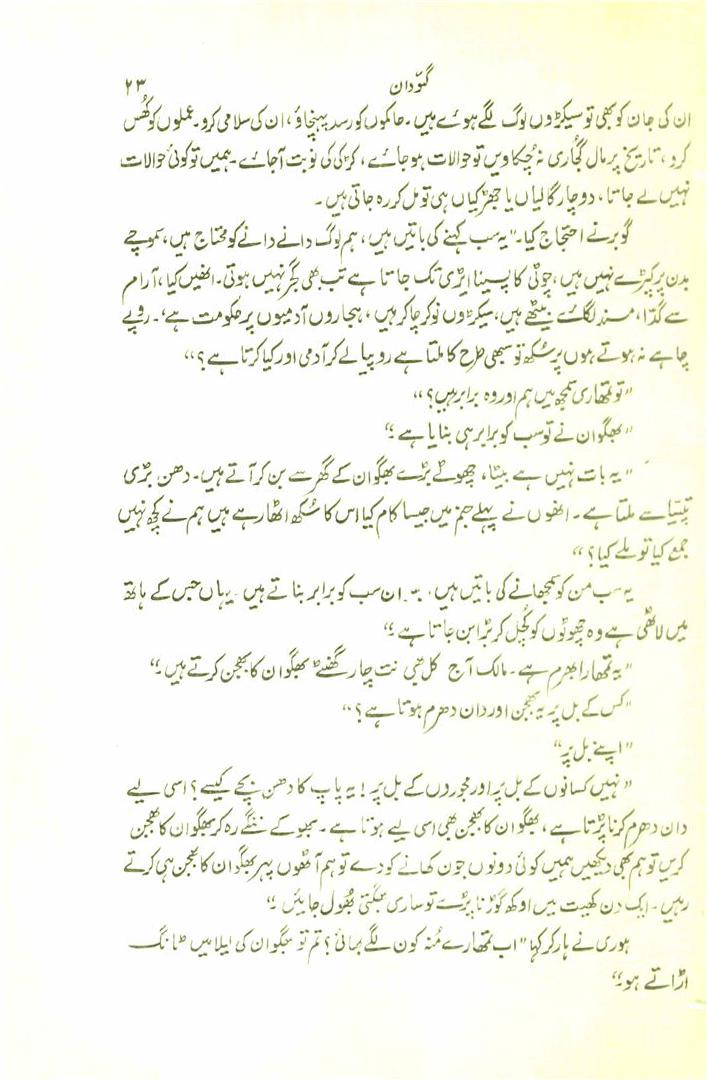 گئودان
۲۳
ان کی جان کو بھی تو سیکڑوں لوگ لگے ہوئے ہیں۔ حاکموں کو رسد پہنچاؤ، ان کی سلامی کرو۔ عملوں کو گھُس
کرو، تاریخ پر مال گجاری نہ چُکاویں تو حوالات ہو جائے، کڑکی کی نوبت آجائے۔ ہمیں تو کوئی حوالات
نہیں لے جاتا، دو چار گالیاں یا جھڑکیاں ہی تو مل کر رہ جاتی ہیں۔
گوبر نے احتجاج کیا۔ "یہ سب کہنے کی باتیں ہیں، ہم لوگ دانے دانے کو محتاج ہیں، سموچے
بدن پر کپڑے نہیں ہیں، چوٹی کا پسینا ایڑی تک جاتا ہے تب بھی گجر نہیں ہوتی۔ انھیں کیا، آرام
سے گدا، مسند لگائے بیٹھے ہیں، سیکڑوں نوکر چاکر ہیں، ہجاروں آدمیوں پر حکومت ہے۔ روپے
چاہے نہ ہوتے ہوں پر سُکھ تو سبھی طرح کا ملتا ہے روپیا لے کر آدمی اور کیا کرتا ہے؟"
"تو تمھاری سمجھ میں ہم اور وہ برابر ہیں؟"
"بھگوان نے تو سب کو برابر ہی بنایا ہے۔"
"یہ بات نہیں ہے بیٹا، چھوٹے بڑے بھگوان کے گھر سے بن کر آتے ہیں۔ دھن بڑی
تپسّیا سے ملتا ہے۔ انھوں نے پہلے جنم میں جیسا کام کیا اس کا سُکھ اٹھا رہے ہیں ہم نے کچھ نہیں
جمع کیا تو ملے کیا؟"
یہ سب من کو سمجھانے کی باتیں ہیں۔ ان سب کو برابر بناتے ہیں۔ یہاں جس کے ہاتھ
میں لاٹھی ہے وہ چھوٹوں کو کُچل کر بڑا بن جاتا ہے۔"
"یہ تمھارا بھرم ہے۔ مالک آج کل بھی نت چار گھنٹے بھگوان کا بھجن کرتے ہیں۔"
"کس کے بل پر یہ بھجن اور دان دھرم ہوتا ہے؟"
"اپنے بل پر"
"نہیں کسانوں کے بل پر اور مجوروں کے بل پر! یہ پاپ کا دھن پچے کیسے؟ اسی لیے
دان دھرم کرنا پڑتا ہے، بھگوان کا بھجن بھی اسی لیے ہوتا ہے۔ بھوکے ننگے رہ کر بھگوان کا بھجن
کریں تو ہم بھی دیکھیں ہمیں کوئی دونوں جون کھانے کو دے تو ہم آٹھوں پہر بھگوان کا بھجن ہی کرتے
رہیں۔ ایک دن کھیت میں اوکھ گوڑنا پڑے تو ساری بھگتی بھُول جائیں۔"
ہوری نے ہار کر کہا "اب تمھارے مُنہ کون لگے بھائی؟ تم تو بھگوان کی لیلا میں ٹانگ
اڑاتے ہو۔"